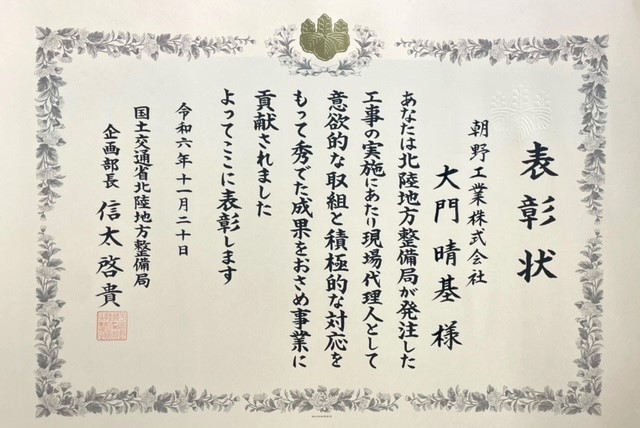 表彰状
朝野工業株式会社
大門晴基様
あなたは北陸地方整備局が発注した
工事の実施にあたり現場代理人として
意欲的な取組と積極的な対応を
もって秀でた成果をおさめ事業に
貢献されました
よってここに表彰します
令和六年十一月二十日
国土交通省北陸地方整備局
企画部長 信太啓貴